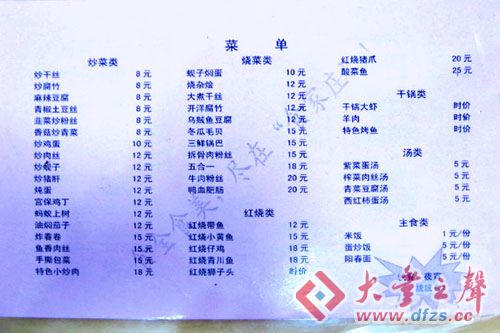 菜 单
炒菜类
炒干丝 8 元
炒腐竹 8 元
麻辣豆腐 8 元
青椒土豆丝 8 元
韭菜炒粉丝 8 元
香菇炒青菜 8 元
炒鸡蛋 10 元
炒肉丝 12 元
炒蚬子 12 元
炒猪肝 12 元
炖蛋 12 元
宫保鸡丁 12 元
蚂蚁上树 12 元
油焖茄子 12 元
炸春卷 15 元
鱼香肉丝 15 元
手撕包菜 15 元
特色小炒肉 18 元
烧菜类
蚬子焖蛋 10 元
烧杂烩 12 元
大煮干丝 12 元
开洋腐竹 12 元
乌贼鱼豆腐 12 元
冬瓜毛贝 15 元
三鲜锅巴 15 元
拆骨肉粉丝 15 元
五合一 18 元
牛肉粉丝 20 元
鸭血肥肠 20 元
红烧类
红烧带鱼 12 元
红烧小黄鱼 15 元
红烧仔鸡 18 元
红烧青川鱼 18 元
红烧狮子头 时价
红烧猪爪 20 元
酸菜鱼 25 元
干锅类
干锅大虾 时价
羊肉 时价
特色烤鱼 时价
汤类
紫菜蛋汤 5 元
榨菜肉丝汤 5 元
青菜豆腐汤 5 元
西红柿蛋汤 5 元
主食类
米饭 1 元/份
蛋炒饭 5 元/份
阳春面 5 元/份
夜宵
大丰之聲
www.dfzs.cc